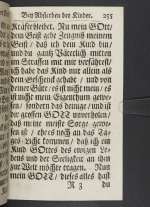 Bey Absterben der Kinder. 255
Krafft bleibet. Nu mein GOtt,
dein Geist gebe Zeugnis meinem
Geist / daß ich dein Kind bin /
und du gantz Väterlich mitten
im Straffen mit mir verfährest /
ich habe das Kind nur allein als
ein Geschenck gehabt / und von
deiner Güte / es ist nicht mein / es
ist nicht mein Eigenthum gewe-
sen / sondern das deinige / und ist
der grossen GOTT unverholen /
daß meine meiste Sorge gewe-
sen ist / ehe es noch an das Ta-
ges-Licht kommen / daß ich ein
Kind GOttes des ewigen Le-
bens und der Seeligkeit an den
zur Welt möchte tragen. Nun
mein GOTT / dieses alles hast
R 3 du